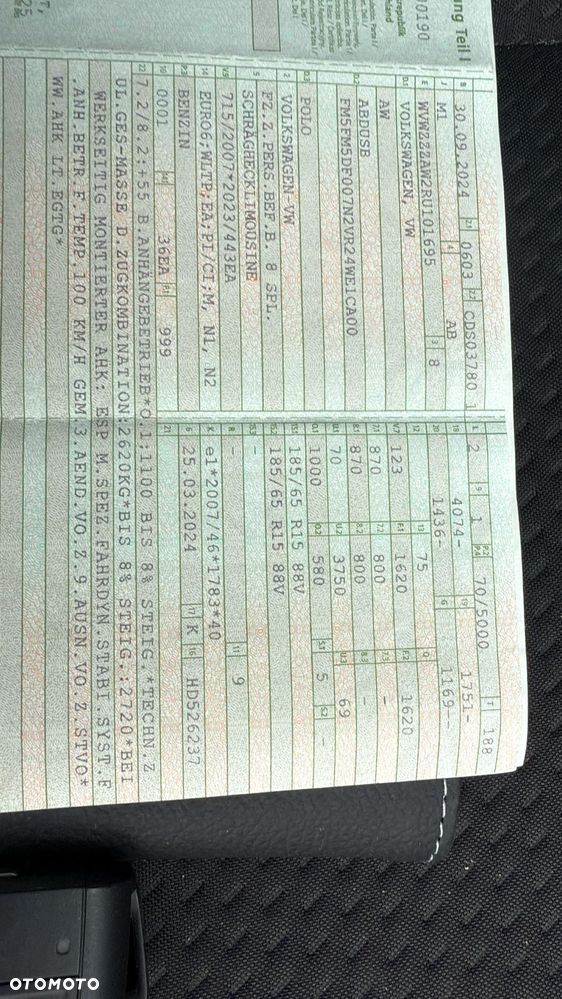 ung Teil I
republik
hland
00190
B 30.09.2024 2.1 0603 2.2 CDS03780 1
J M1 4 AB
E WVWZZZAW2RU101695 3 8
D.1 VOLKSWAGEN, VW
AW
D.2 ABDUSB
FM5FM5DF007N2VR24WE1CA00
D.3 POLO
2 VOLKSWAGEN-VW
5 FZ.Z.PERS.BEF.B. 8 SPL.
SCHRÄGHECKLIMOUSINE
V.9 715/2007*2023/443EA
14 EURO6;WLTP;EA;PI/CI;M, N1, N2
P.3 BENZIN
10 0001 14.1 36EA P.1 999
L 2 9 1 P.2/P.4 70/5000 T 188
18 4074- 19 1751-
20 1436- G 1169--
12 - 13 75 Q -
V.7 123 F.1 1620 F.2 1620
7.1 870 7.2 800 7.3 -
8.1 870 8.2 800 8.3 -
U.1 70 U.2 3750 U.3 69
O.1 1000 O.2 580 S.1 5 S.2 -
15.1 185/65 R15 88V
15.2 185/65 R15 88V
15.3 -
R - 11 9
K e1*2007/46*1783*40
6 25.03.2024 17 K 16 HD526237
21
22 7.2/8.2:+55 B.ANHÄNGEBETRIEB*O.1:1100 BIS 8% STEIG.*TECHN.Z
UL.GES-MASSE D.ZUGKOMBINATION:2620KG*BIS 8% STEIG.:2720*BEI
WERKSEITIG MONTIERTER AHK: ESP M.SPEZ.FAHRDYN.STABI.SYST.F
.ANH.BETR.F.TEMP.100 KM/H GEM.3.AEND.VO.Z.9.AUSN.VO.Z.STVO*
WW.AHK LT.EGTG*
OTOMOTO